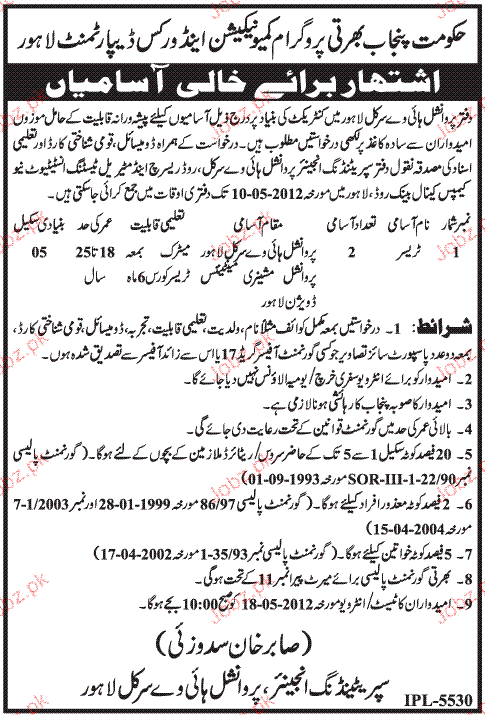 حکومت پنجاب بھرتی پروگرام کمیونیکیشن اینڈ ورکس ڈیپارٹمنٹ لاہور
اشتہار برائے خالی آسامیاں
دفتر پروانشل ہائی وے سرکل لاہور میں کنٹریکٹ کی بنیاد پر درج ذیل آسامیوں کیلئے پیشہ ورانہ قابلیت کے حامل موزوں
امیدواران سے سادہ کاغذ پر لکھی درخواستیں مطلوب ہیں۔ درخواست کے ہمراہ ڈومیسائل، قومی شناختی کارڈ اور تعلیمی
اسناد کی مصدقہ نقول دفتر سپرنٹنڈنگ انجینئر پروانشل ہائی وے سرکل، روڈ ریسرچ اینڈ مٹیریل ٹیسٹنگ انسٹیٹیوٹ نیو
کیمپس کینال بینک روڈ، لاہور میں مورخہ 10-05-2012 تک دفتری اوقات میں جمع کرائی جاسکتی ہیں۔
نمبر شمار نام آسامی تعداد آسامی مقام آسامی تعلیمی قابلیت عمر کی حد بنیادی سکیل
1 ٹریسر 2 پروانشل ہائی وے سرکل لاہور میٹرک بمعہ 18 تا 25 05
پروانشل مشینری مینٹیننس ٹریسر کورس 6 ماہ سال
ڈویژن لاہور
شرائط: 1۔ درخواستیں بمعہ مکمل کوائف مثلاً نام، ولدیت، تعلیمی قابلیت، تجربہ، ڈومیسائل، قومی شناختی کارڈ،
بمعہ دو عدد پاسپورٹ سائز تصاویر جو کسی گورنمنٹ آفیسر گریڈ 17 یا اس سے زائد آفیسر سے تصدیق شدہ ہوں۔
2۔ امیدوار کو برائے انٹرویو سفری خرچ/یومیہ الاؤنس نہیں دیا جائے گا۔
3۔ امیدوار کا صوبہ پنجاب کا رہائشی ہونا لازمی ہے۔
4۔ بالائی عمر کی حد میں گورنمنٹ قوانین کے تحت رعایت دی جائے گی۔
5۔ 20 فیصد کوٹہ سکیل 1 سے 5 تک کے حاضر سروس/ریٹائرڈ ملازمین کے بچوں کے لئے ہوگا۔ (گورنمنٹ پالیسی
نمبر SOR-III-1-22/90 مورخہ 01-09-1993)
6۔ 2 فیصد کوٹہ معذور افراد کیلئے ہوگا۔ (گورنمنٹ پالیسی 86/97 مورخہ 28-01-1999 اور نمبر 7-1/2003
مورخہ 15-04-2004)
7۔ 5 فیصد کوٹہ خواتین کیلئے ہوگا۔ (گورنمنٹ پالیسی نمبر 1-35/93 مورخہ 17-04-2002)
8۔ بھرتی گورنمنٹ پالیسی برائے میرٹ پیرا نمبر 11 کے تحت ہوگی۔
9۔ امیدواران کا ٹیسٹ/انٹرویو مورخہ 18-05-2012 کو صبح 10:00 بجے ہوگا۔
(صابر خان سدوزئی)
سپرنٹینڈنگ انجینئر، پروانشل ہائی وے سرکل لاہور
IPL-5530
Jobz.pk